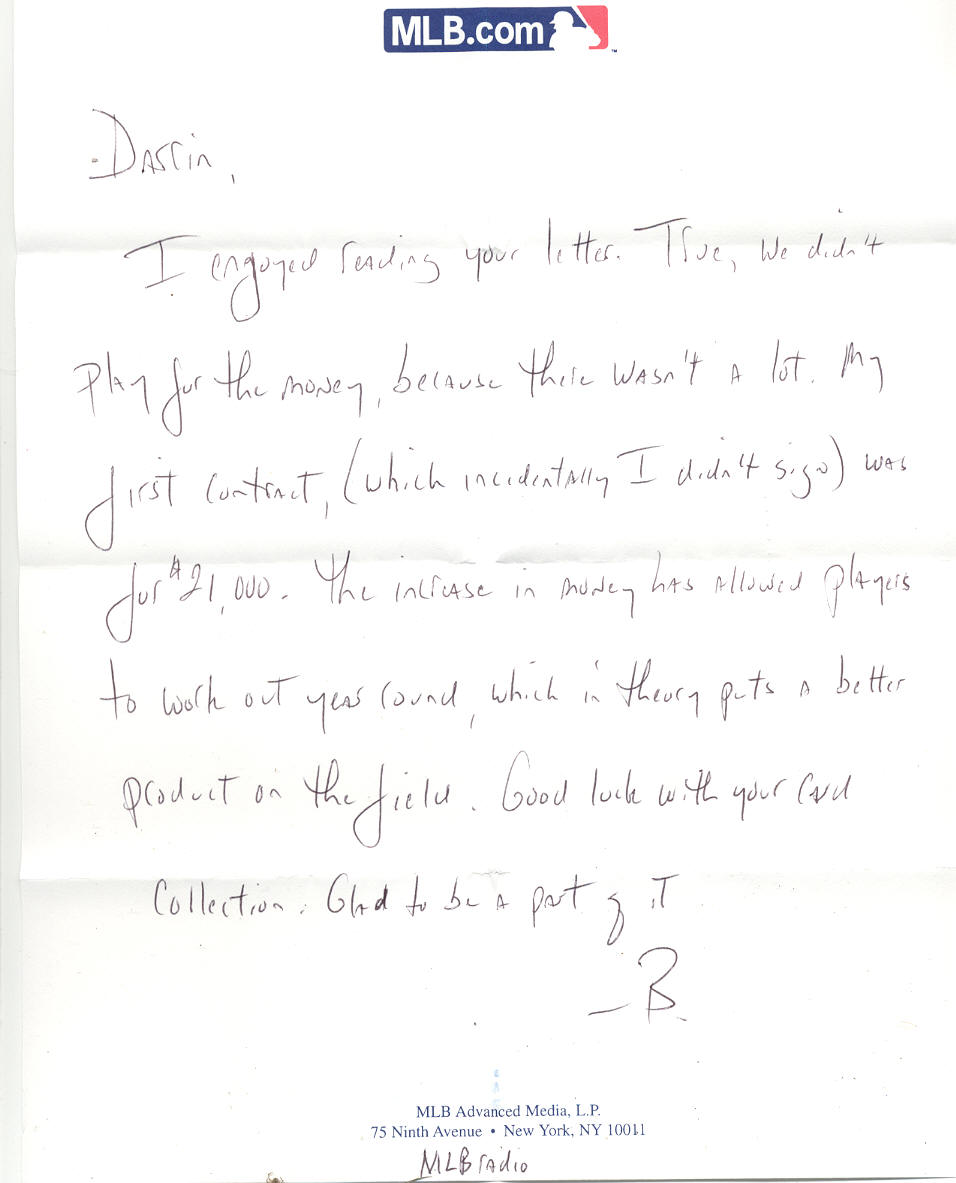 MLB.com
Darrin,
I enjoyed reading your letter. True, we didn't
play for the money, because there wasn't a lot. My
first contract, (which incidentally I didn't sign) was
for $21,000. The increase in money has allowed players
to work out year round, which in theory puts a better
product on the field. Good luck with your card
collection. Glad to be a part of it
— B.
MLB Advanced Media, L.P.
75 Ninth Avenue • New York, NY 10011
MLB radio